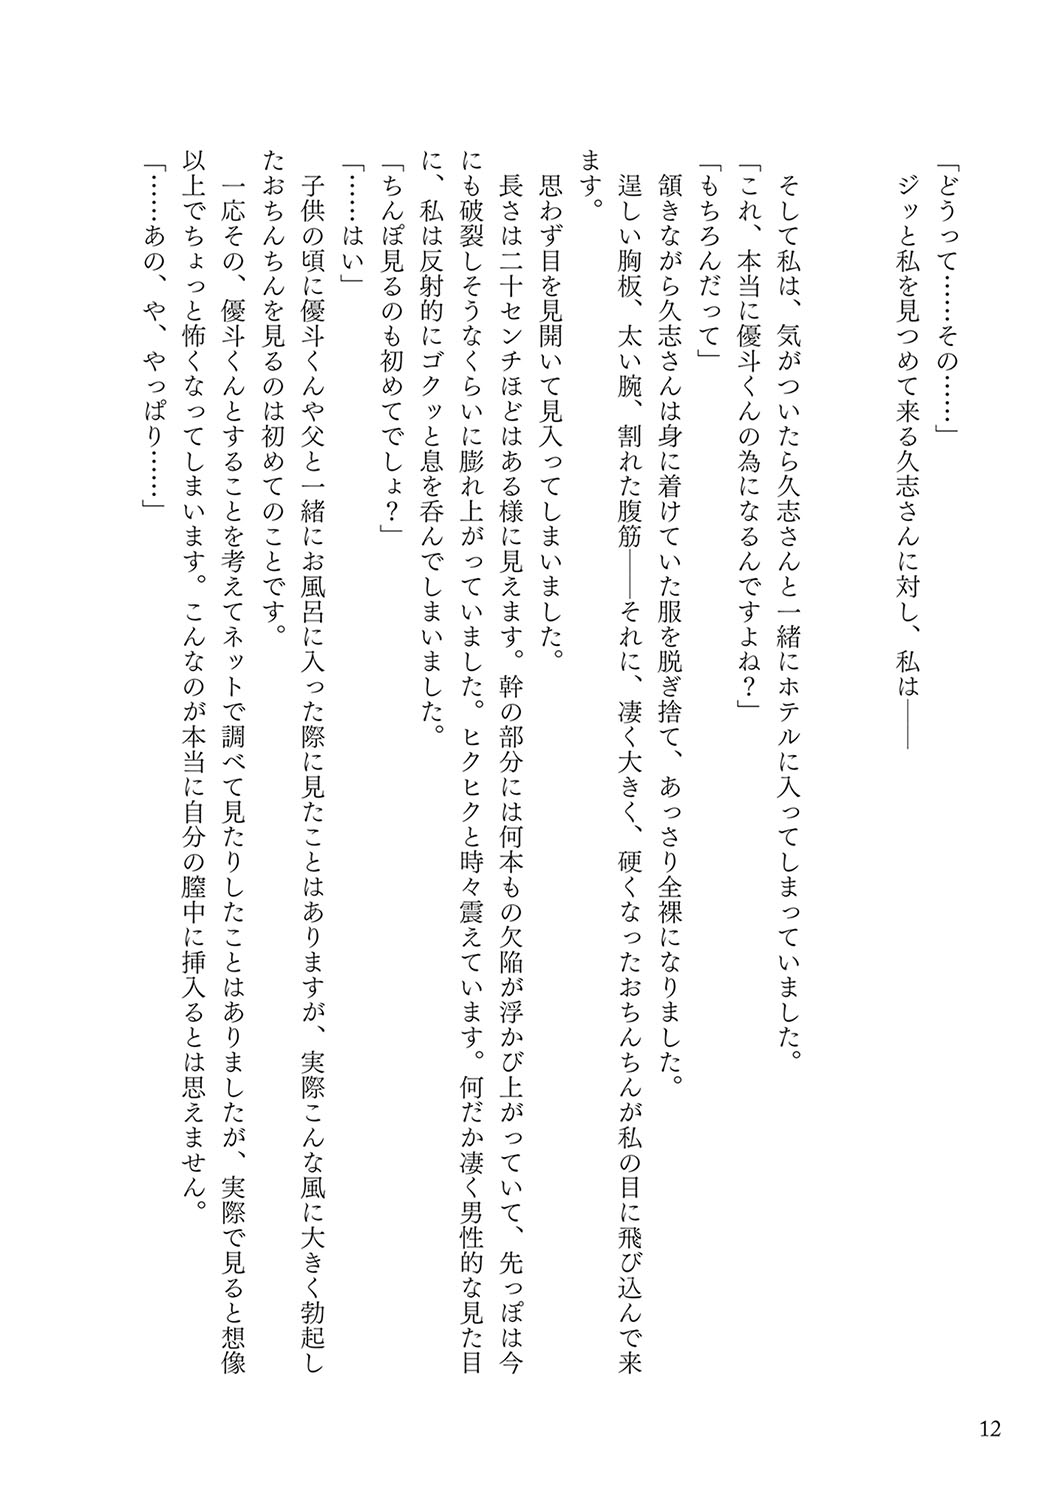 「どうって……その……」
ジッと私を見つめて来る久志さんに対し、私は――
そして私は、気がついたら久志さんと一緒にホテルに入ってしまっていました。
「これ、本当に優斗くんの為になるんですよね？」
「もちろんだって」
頷きながら久志さんは身に着けていた服を脱ぎ捨て、あっさり全裸になりました。
逞しい胸板、太い腕、割れた腹筋――それに、凄く大きく、硬くなったおちんちんが私の目に飛び込んで来
ます。
思わず目を見開いて見入ってしまいました。
長さは二十センチほどはある様に見えます。幹の部分には何本もの欠陥が浮かび上がっていて、先っぽは今
にも破裂しそうなくらいに膨れ上がっていました。ヒクヒクと時々震えています。何だか凄く男性的な見た目
に、私は反射的にゴクッと息を呑んでしまいました。
「ちんぽ見るのも初めてでしょ？」
「……はい」
子供の頃に優斗くんや父と一緒にお風呂に入った際に見たことはありますが、実際こんな風に大きく勃起し
たおちんちんを見るのは初めてのことです。
一応その、優斗くんとすることを考えてネットで調べて見たりしたことはありましたが、実際で見ると想像
以上でちょっと怖くなってしまいます。こんなのが本当に自分の膣中に挿入るとは思えません。
「……あの、や、やっぱり……」
12